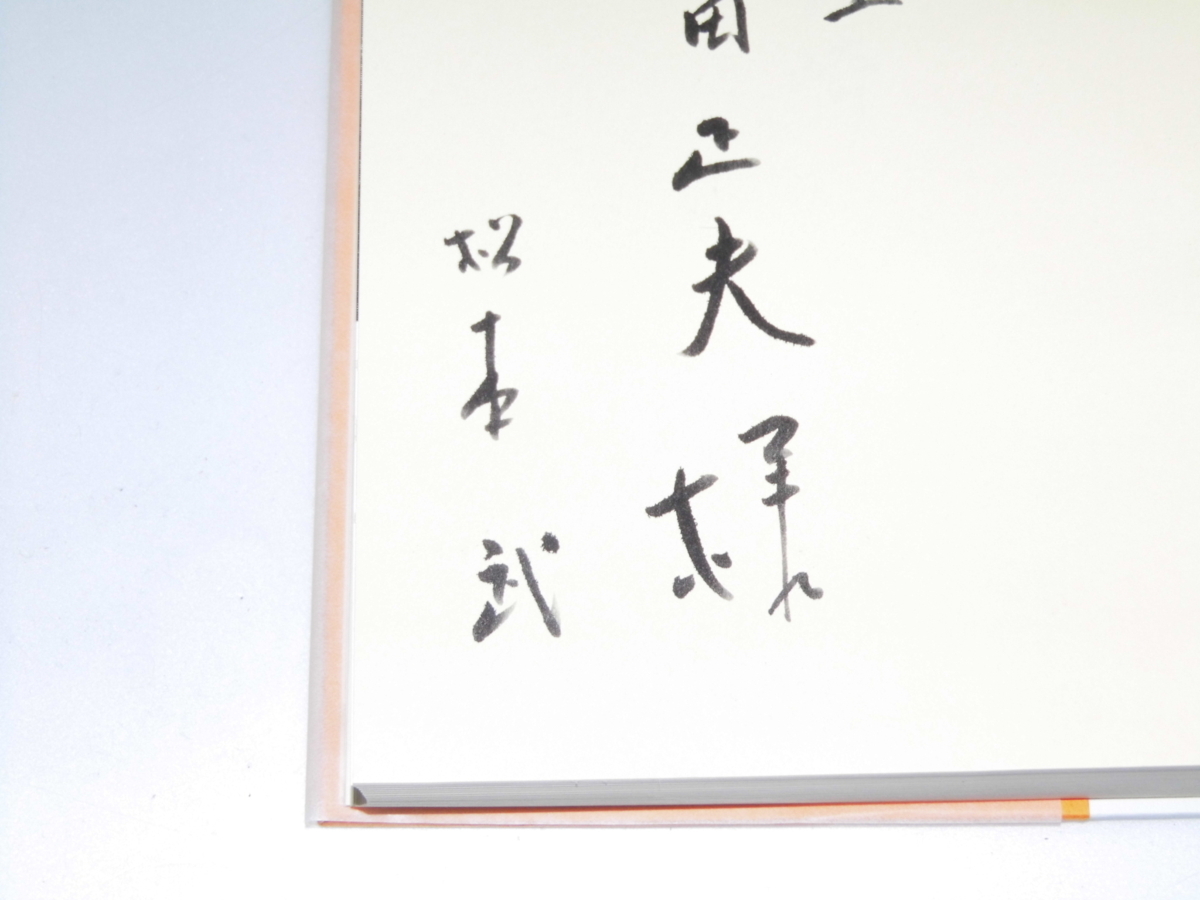 田正夫様
松本武